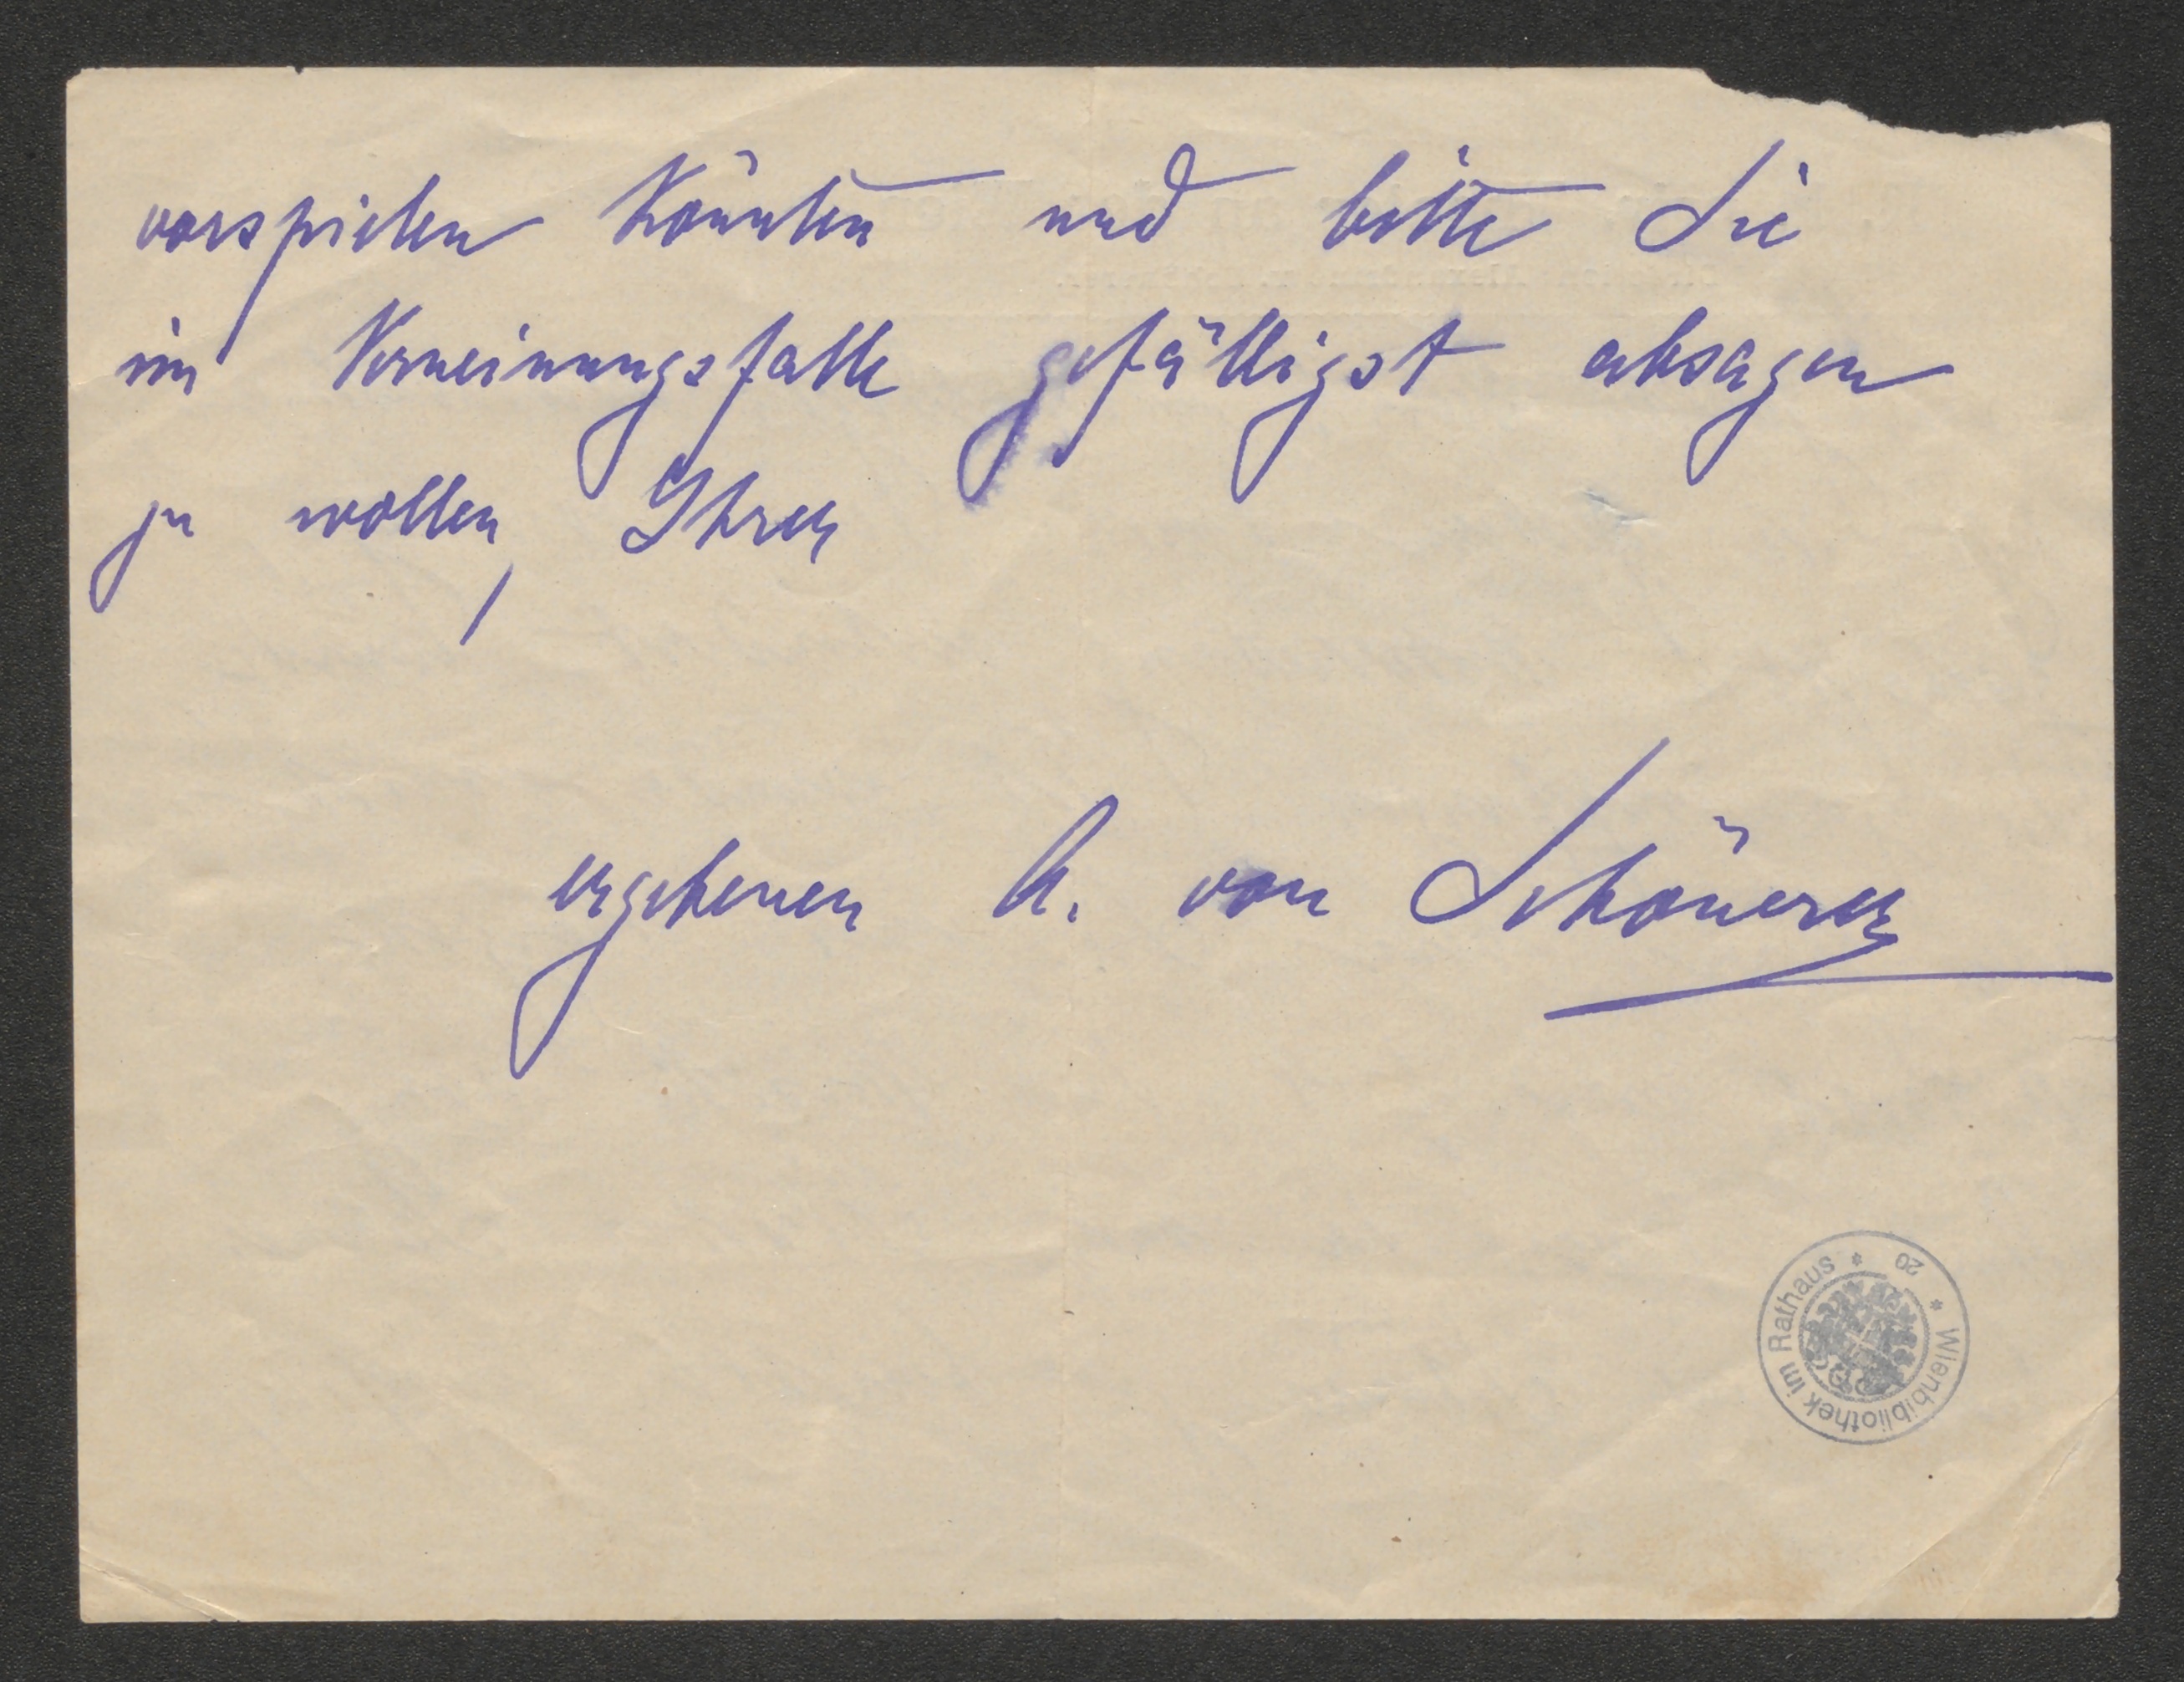 vorspielen könnten und bitte Sie
im Verneinungsfalle gefälligst absagen
zu wollen, Ihrer
ergebenen A. von Schönerer
* Wienbibliothek im Rathaus * 20